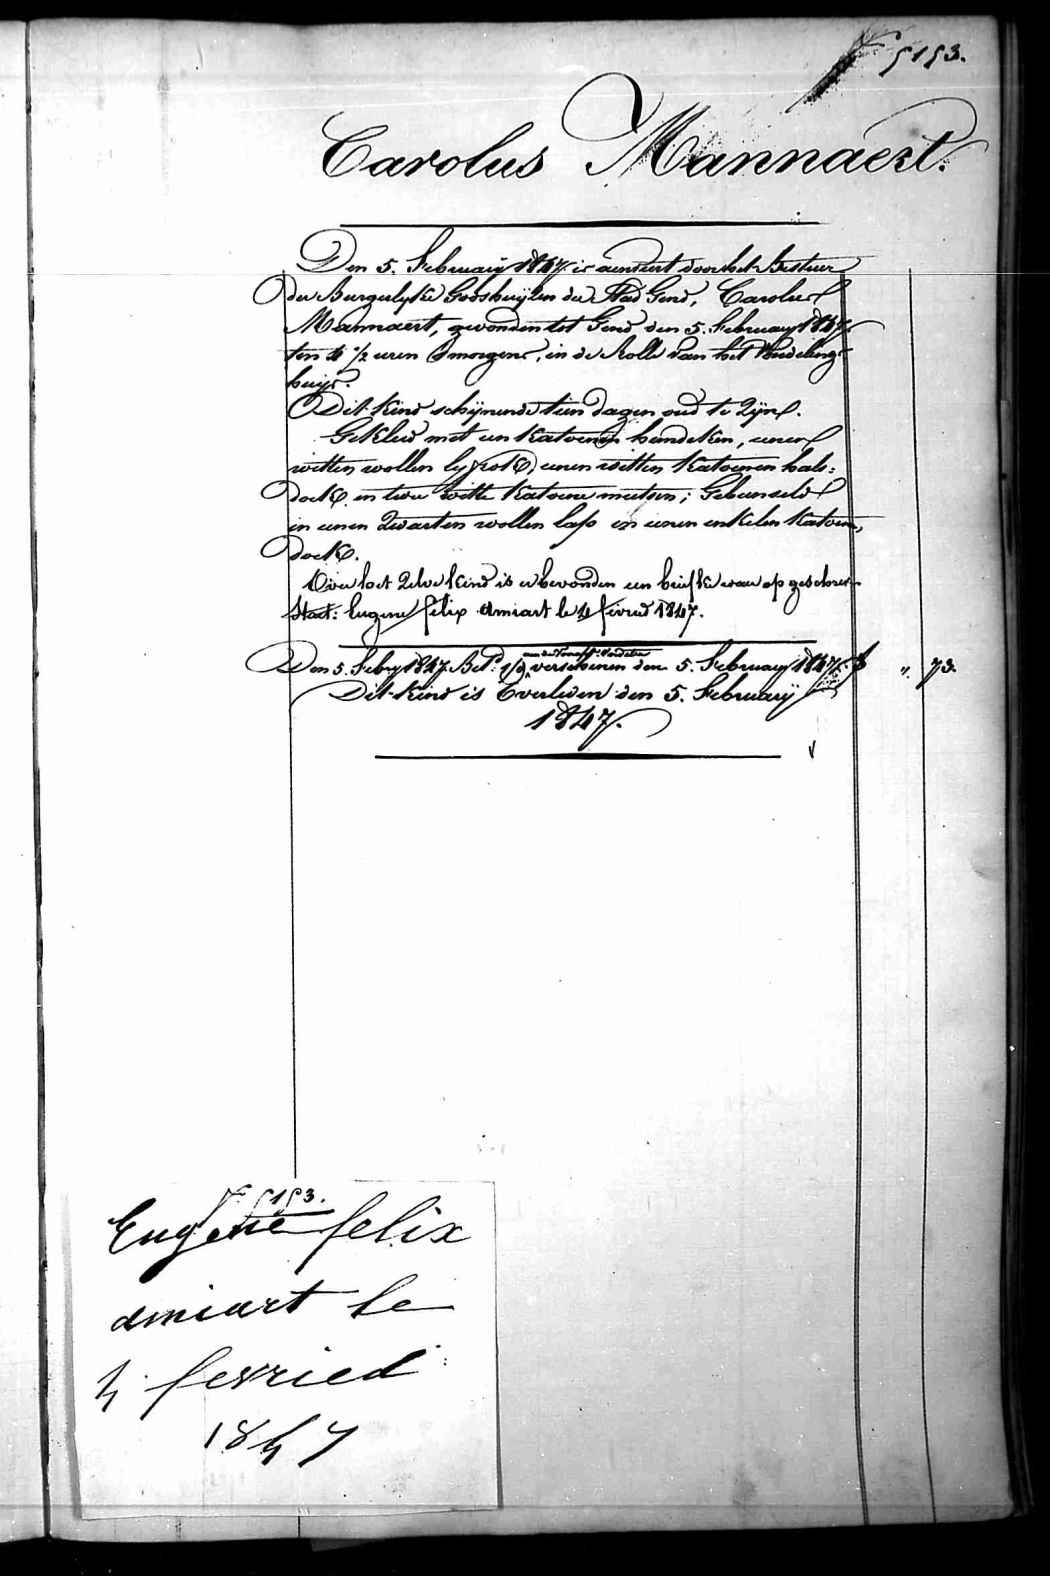 5153.
Carolus Mannaert.
Den 5. February 1847. is aenveert door het Bestuer
der Burgerlyke Godshuyzen der Stad Gend, Carolus
Mannaert, gevonden tot Gend den 5. February 1847
ten 4 1/2 uren Smorgens, in de Rolle van het Vondelings
huys.
Dit kind schynende tien dagen oud te Zyn.
Gekleed met een katoenen hemdeken, eenen
witten wollen lyfrok, eenen witten katoenen hals=
doek en twee witte katoene mutsen; Gebunseld
in eenen Zwarten wollen lap en eenen enkelen katoen,
doek.
Over het Zelve kind is er bevonden een briefke waer op geschreven
Staet: Eugene felix Amiart le 4 fevried 1847.
Den 5. Febry 1847. Bet.d 1/9 verschenen den 5. February 1847. f " 73.
Dit kind is Overleden den 5. February
1847.
5153.
Eugene felix
amiart le
4 fevried
1847